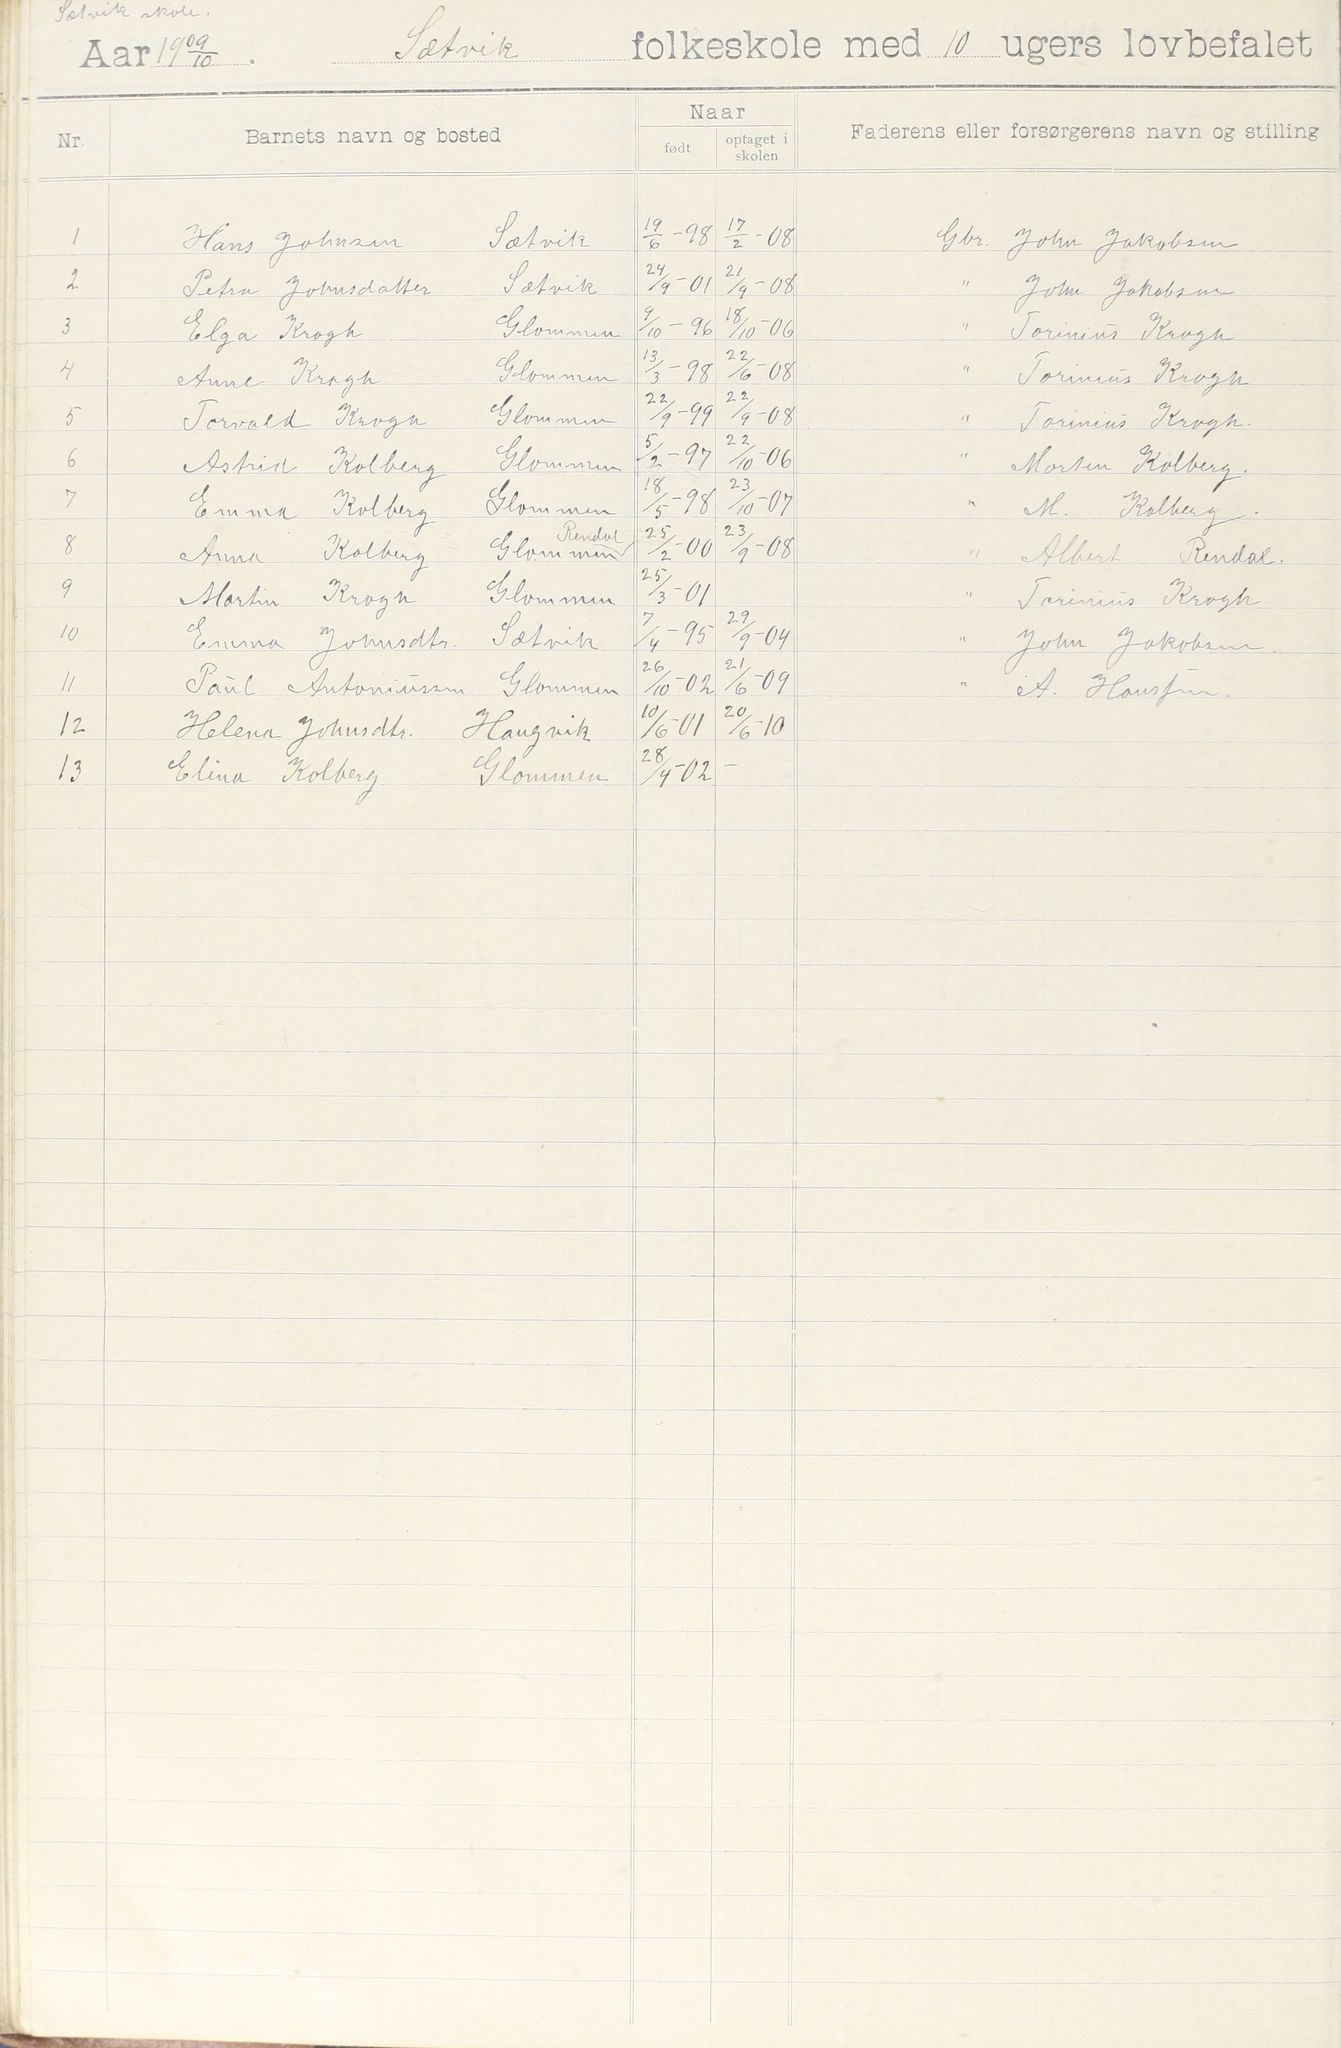 Sætvik skole.
Aar 1909/10. Sætvik folkeskole med 10 ugers lovbefalet
Nr. Barnets navn og bosted Naar født optaget i skolen Faderens eller forsørgerens navn og stilling
1 Hans Johnsen Sætvik 19/6-98 17/2-08 Gbr. John Jakobsen
2 Petra Johnsdatter Sætvik 24/9-01 21/9-08 " John Jakobsen
3 Elga Krogh Glommen 9/10-96 18/10-06 " Torinius Krogh
4 Anne Krogh Glommen 13/3-98 22/6-08 " Torinius Krogh
5 Torvald Krogh Glommen 22/9-99 22/9-08 " Torinius Krogh.
6 Astrid Kolberg Glommen 5/2-97 22/10-06 " Morten Kolberg.
7 Emma Kolberg Glommen 18/5-98 23/10-07 " M. Kolberg.
Rendal
8 Anna Kolberg Glommen 25/2-00 23/9-08 " Albert Rendal.
9 Martin Krogh Glommen 25/3-01 " Torinius Krogh
10 Emma Johnsdtr. Sætvik 7/4-95 29/9-04 " John Jakobsen.
11 Paul Antoniussen Glommen 26/10-02 21/6-09 " A. Hansen.
12 Helena Johnsdtr. Haugvik 10/6-01 20/6-10
13 Elina Kolberg Glommen 28/4-02 -